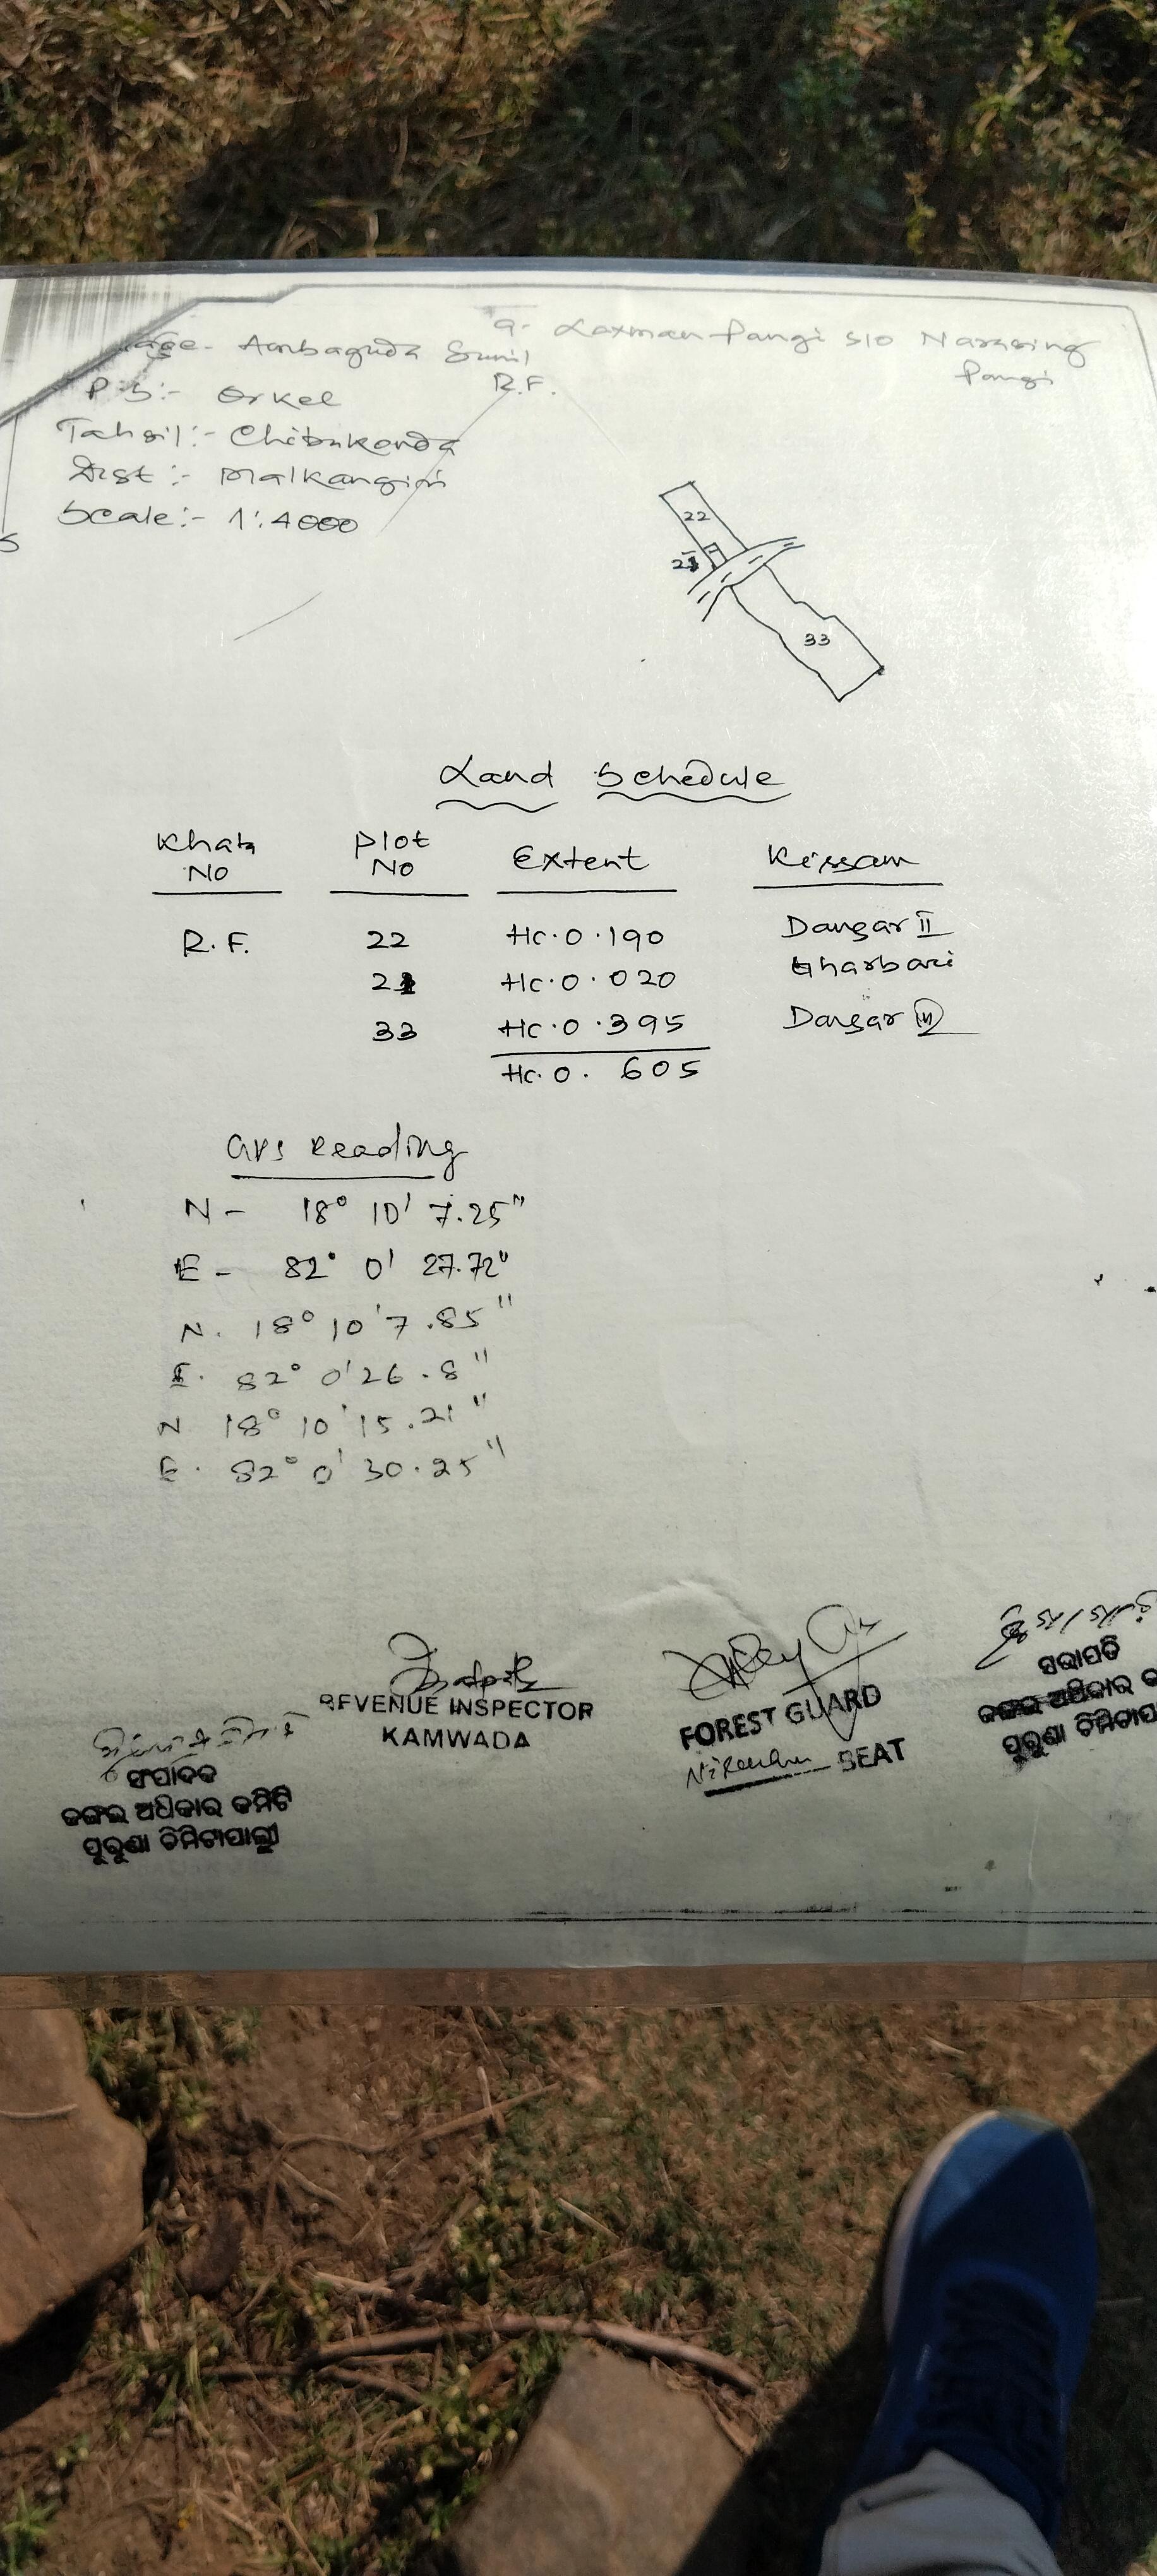 Ambaguda Sunil
R.F.
9- Laxman Pangi S/o Narasing
Pangi
P.S:- Orkel
Tahsil:- Chitrakonda
Dist:- Malkangiri
Scale:- 1:4000
22
21
33
Land Schedule
Khata No Plot No Extent Kissam
R.F. 22 Hc.0.190 Dangar II
21 Hc.0.020 Gharbari
33 Hc.0.395 Dangar
Hc.0.605
GPS Reading
N- 18° 10' 7.25"
E- 82° 0' 27.72"
N. 18° 10' 7.85"
E. 82° 0' 26.8"
N 18° 10' 15.21"
E. 82° 0' 30.25"
REVENUE INSPECTOR
KAMWADA
FOREST GUARD
BEAT
ସଭାପତି
ଜଙ୍ଗଲ ଅଧିକାର
ପୁରୁଣା
ସଂପାଦକ
ଜଙ୍ଗଲ ଅଧିକାର କମିଟି
ପୁରୁଣା ଚିମିଟାପାଲ୍ଲୀ